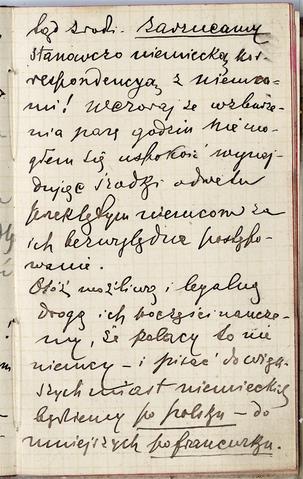 ląd zrodi. Zarzucamy
stanowczo niemiecką kor-
respondencyą z niemca-
mi! Wczoraj ze wzburze-
nia parę godzin nie mo-
głem się uspokoić wynaj-
dując środki odwetu
przeklętym niemcom za
ich bezwzględne postępo-
wanie.
Otóż możliwą i legalną
drogą ich boczęści naucze-
my, że polacy to nie
niemcy – i pisać do więk-
szych miast niemieckich
będziemy po polsku – do
mniejszych po francusku.